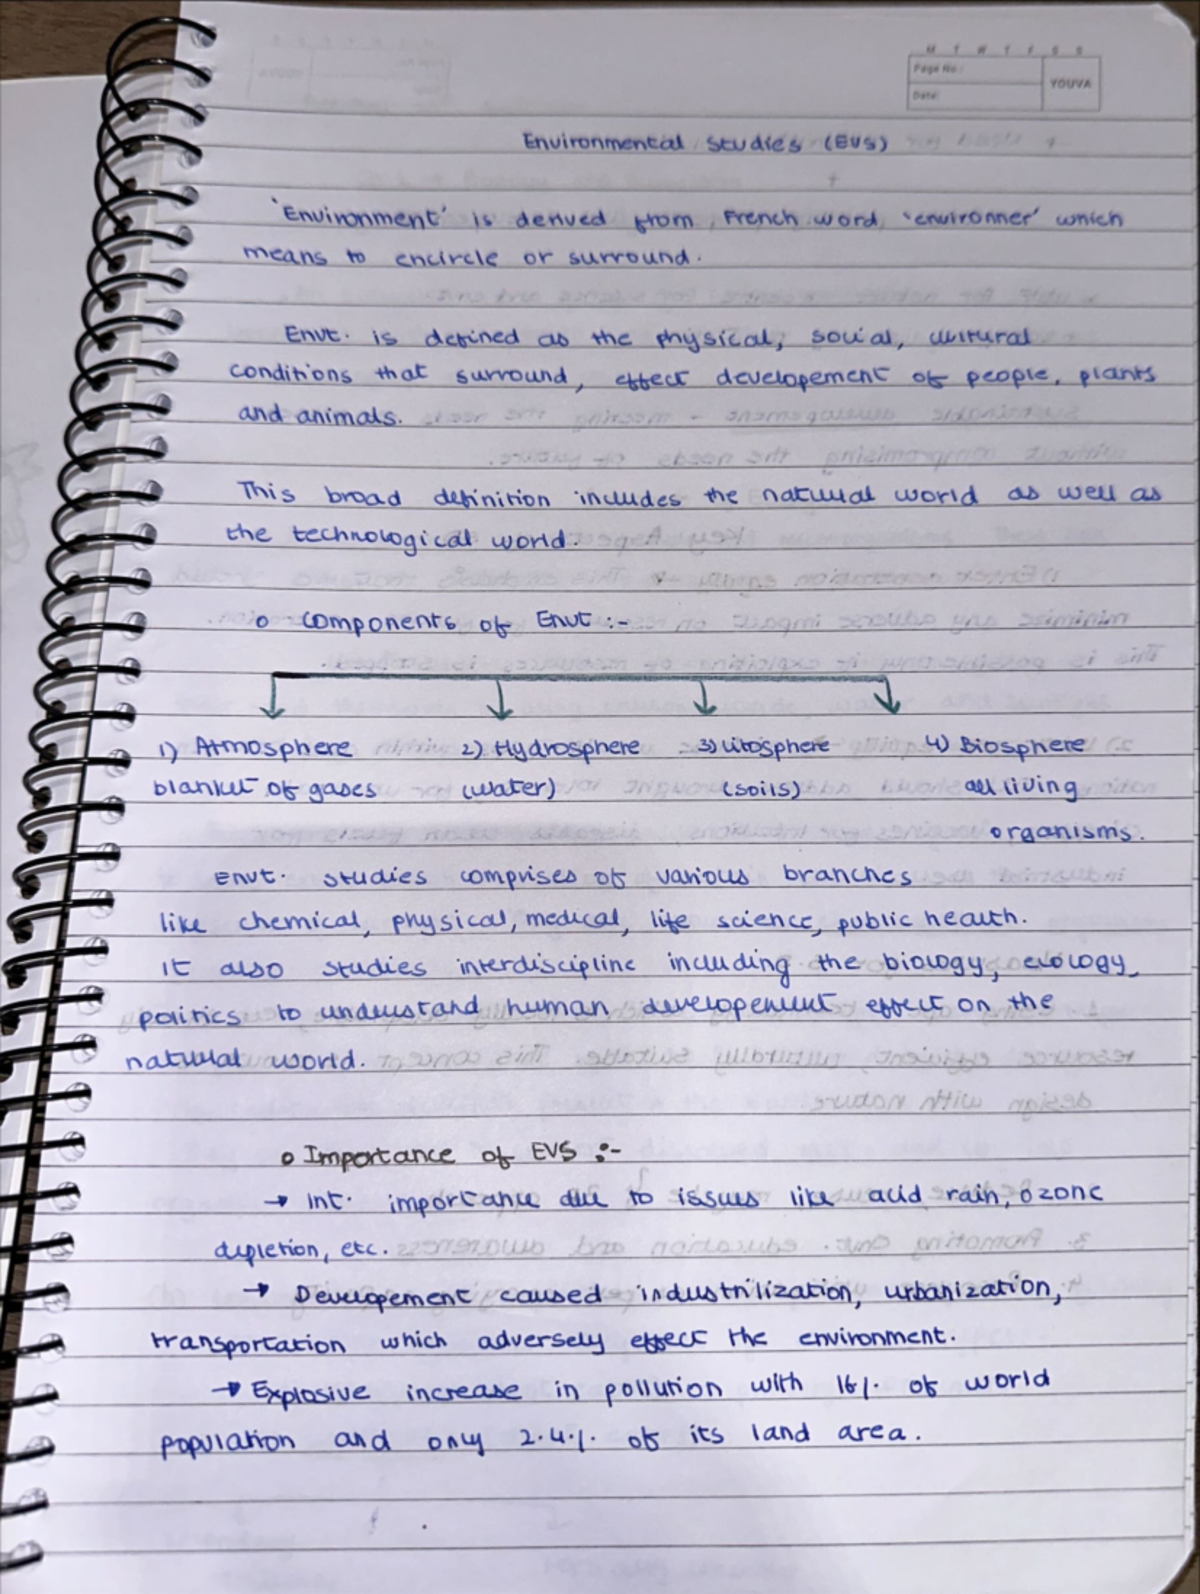 M T W T F S S
Page No.:
Date:
YOUVA
Environmental Studies (EVS)
'Environment' is derived from French word 'environner' which
means to encircle or surround.
Envt. is defined as the physical, social, cultural
conditions that surround, effect developement of people, plants
and animals.
This broad definition includes the natural world as well as
the technological world.
o Components of Envt :-
1) Atmosphere 2) Hydrosphere 3) Litosphere 4) Biosphere
blanket of gases (water) (soils) all living
organisms.
Envt. studies comprises of various branches
like chemical, physical, medical, life science, public health.
It also studies interdiscipline including the biology, ecology,
politics to understand human developement effect on the
natural world.
o Importance of EVS :-
→ Int. importance due to issues like acid rain, ozone
depletion, etc.
→ Developement caused industrilization, urbanization,
transportation which adversely effect the environment.
→ Explosive increase in pollution with 16% of world
population and only 2.4% of its land area.